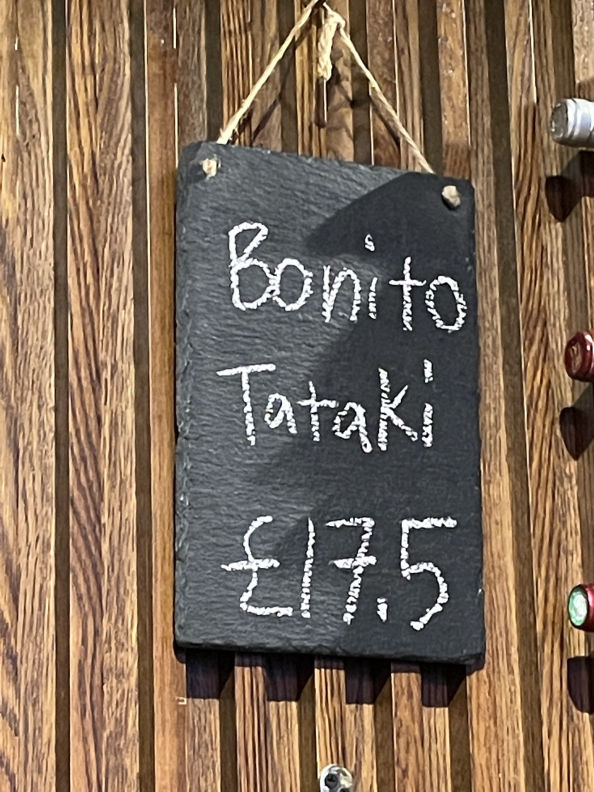 Bonito
Tataki
£17.5